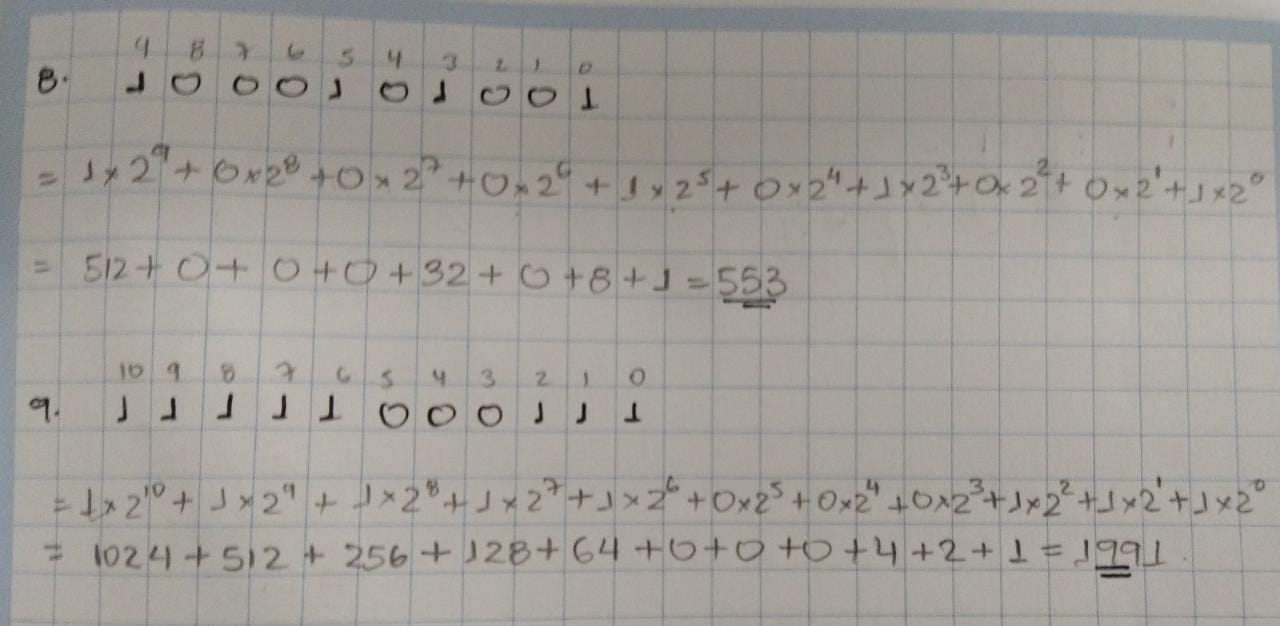 9 8 7 6 5 4 3 2 1 0
8. 1 0 0 0 1 0 1 0 0 1
= 1 × 2⁹ + 0 × 2⁸ + 0 × 2⁷ + 0 × 2⁶ + 1 × 2⁵ + 0 × 2⁴ + 1 × 2³ + 0 × 2² + 0 × 2¹ + 1 × 2⁰
= 512 + 0 + 0 + 0 + 32 + 0 + 8 + 1 = 553
10 9 8 7 6 5 4 3 2 1 0
9. 1 1 1 1 1 0 0 0 1 1 1
= 1 × 2¹⁰ + 1 × 2⁹ + 1 × 2⁸ + 1 × 2⁷ + 1 × 2⁶ + 0 × 2⁵ + 0 × 2⁴ + 0 × 2³ + 1 × 2² + 1 × 2¹ + 1 × 2⁰
= 1024 + 512 + 256 + 128 + 64 + 0 + 0 + 0 + 4 + 2 + 1 = 1991.